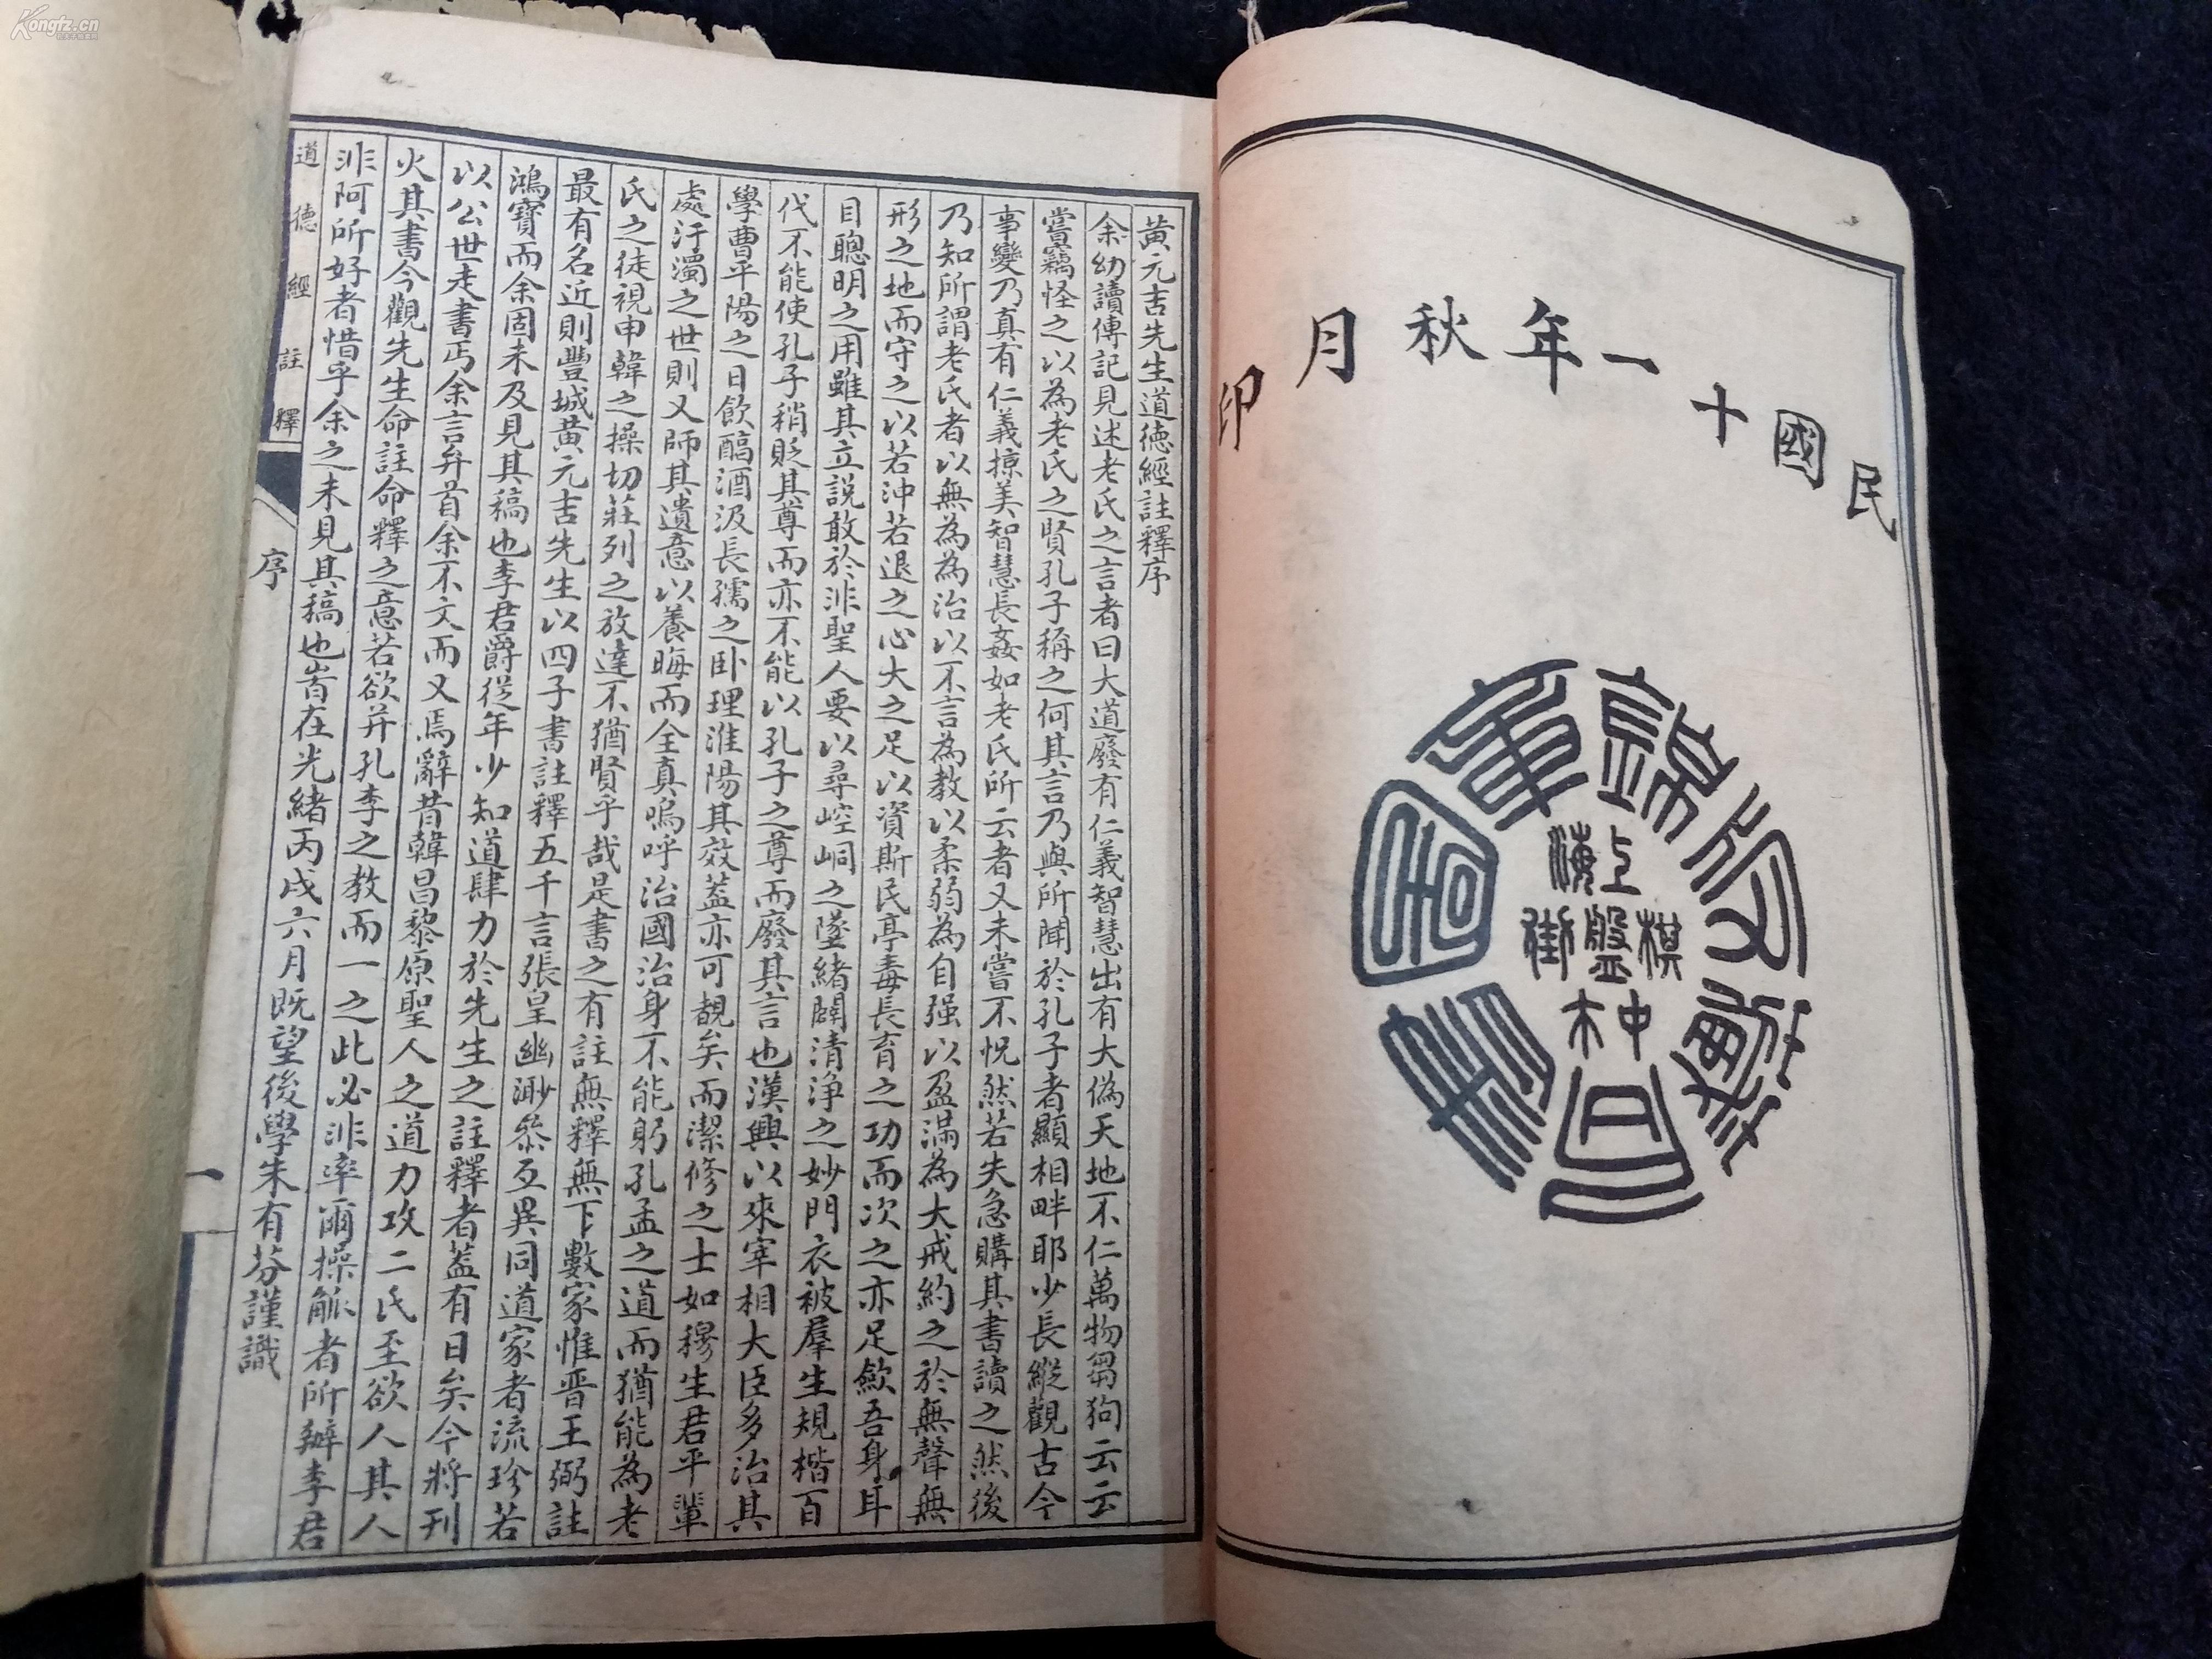 Kongfz.cn
民國十一年秋月印
上海
棋盤街
中
黃元吉先生道德經註釋序
余幼讀傳記見述老氏之言者曰大道廢有仁義智慧出有大偽天地不仁萬物芻狗云云
嘗竊怪之以為老氏之賢孔子稱之何其言乃與所聞於孔子者顯相畔耶少長縱觀古今
事變乃真有仁義掠美智慧長姦如老氏所云者又未嘗不怳然若失急購其書讀之然後
乃知所謂老氏者以無為為治以不言為教以柔弱為自强以盈滿為大戒約之於無聲無
形之地而守之以若沖若退之心大之足以資斯民亭毒長育之功而次之亦足歛吾身耳
目聰明之用雖其立說敢於非聖人要以尋崆峒之墜緒闢清淨之妙門衣被羣生規楷百
代不能使孔子稍貶其尊而亦不能以孔子之尊而廢其言也漢興以來宰相大臣多治其
學曹平陽之日飲醇酒汲長孺之卧理淮陽其效蓋亦可覩矣而潔修之士如穆生君平輩
處汙濁之世則又師其遺意以養晦而全真嗚呼治國治身不能躬孔孟之道而猶能為老
氏之徒視申韓之操切莊列之放達不猶賢乎哉是書之有註無釋無下數家惟晋王弼註
最有名近則豐城黃元吉先生以四子書註釋五千言張皇幽渺參互異同道家者流珍若
鴻寶而余固未及見其稿也李君爵從年少知道肆力於先生之註釋者蓋有日矣今將刊
以公世走書丐余言弁首余不文而又焉辭昔韓昌黎原聖人之道力攻二氏至欲人其人
火其書今觀先生命註命釋之意若欲并孔李之教而一之此必非率爾操觚者所辦李君
非阿所好者惜乎余之未見其稿也旹在光緒丙戌六月既望後學朱有芬謹識
道德經註釋
序
一